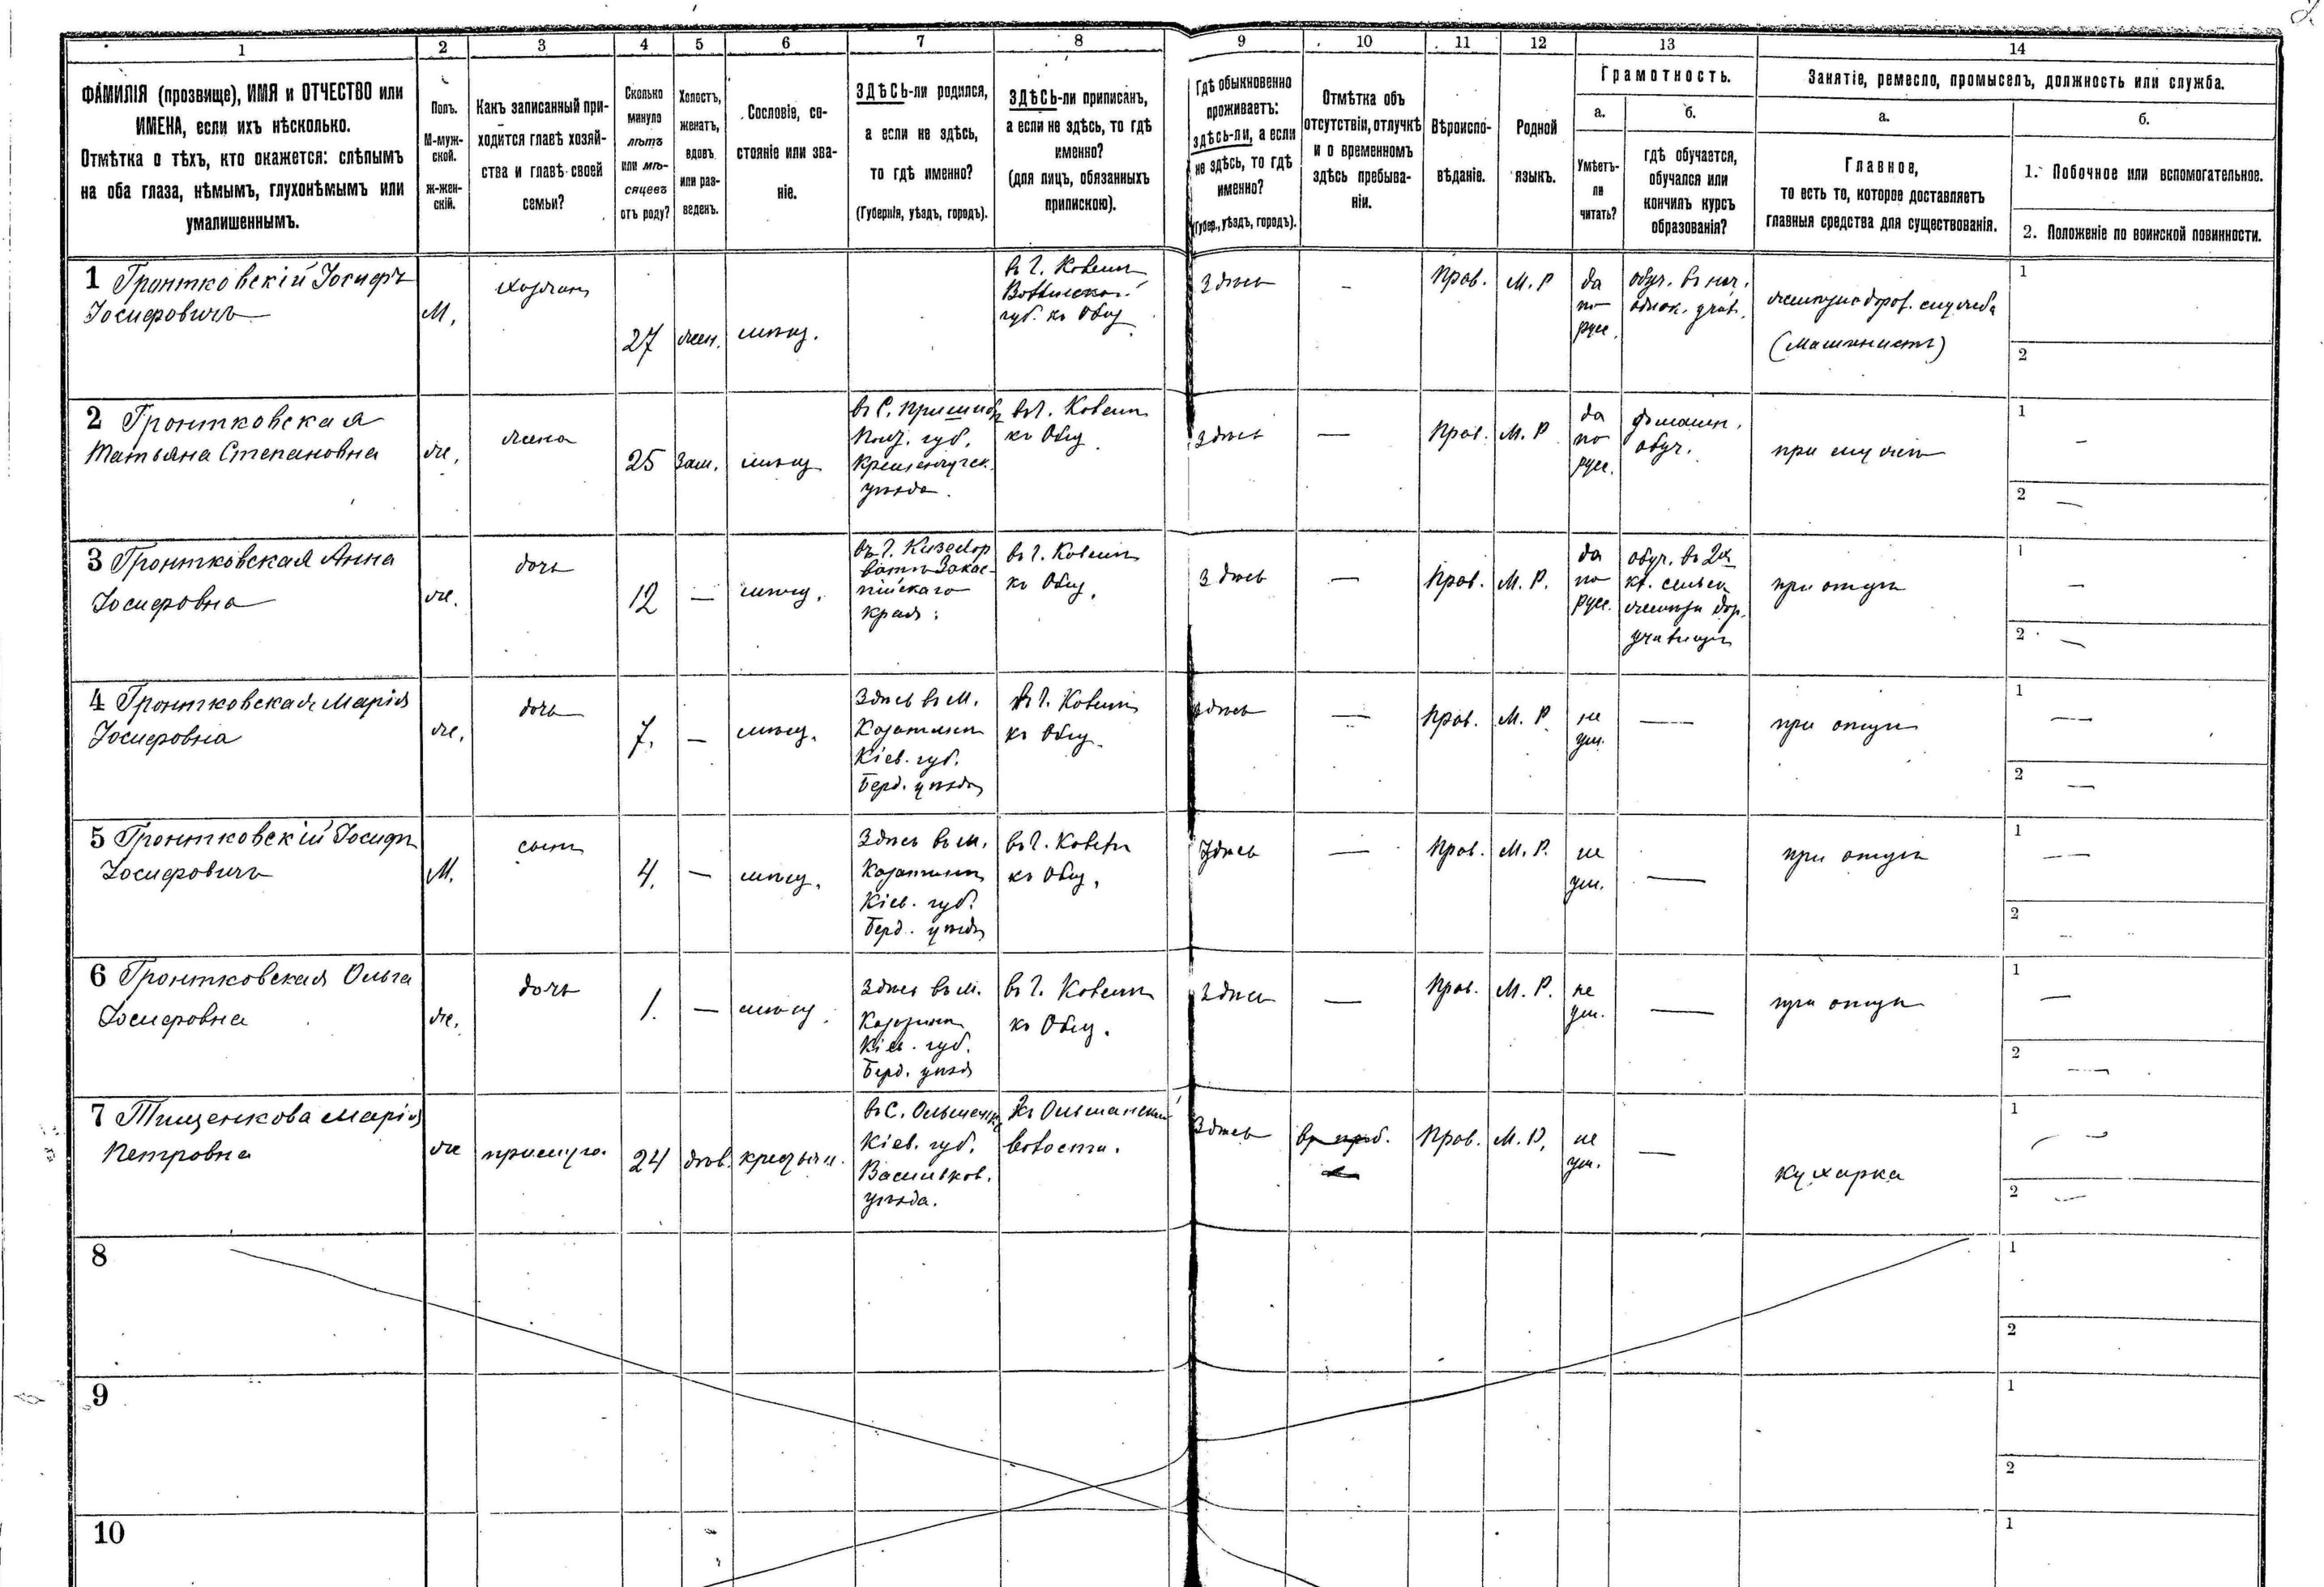 1 2 3 4 5 6 7 8 9 10 11 12 13 14
ФАМИЛІЯ (прозвище), ИМЯ и ОТЧЕСТВО или
ИМЕНА, если ихъ нѣсколько.
Отмѣтка о тѣхъ, кто окажется: слѣпымъ
на оба глаза, нѣмымъ, глухонѣмымъ или
умалишеннымъ.
Полъ.
М-муж-
ской.
ж-жен-
скій.
Какъ записанный при-
ходится главѣ хозяй-
ства и главѣ своей
семьи?
Сколько
минуло
лѣтъ
или мѣ-
сяцевъ
отъ роду?
Холостъ,
женатъ,
вдовъ
или раз-
веденъ.
Сословіе, со-
стояніе или зва-
ніе.
ЗДѢСЬ-ли родился,
а если не здѣсь,
то гдѣ именно?
(Губернія, уѣздъ, городъ).
ЗДѢСЬ-ли приписанъ,
а если не здѣсь, то гдѣ
именно?
(для лицъ, обязанныхъ
припискою).
Гдѣ обыкновенно
проживаетъ:
здѣсь-ли, а если
не здѣсь, то гдѣ
именно?
(Губер., уѣздъ, городъ).
Отмѣтка объ
отсутствіи, отлучкѣ
и о временномъ
здѣсь пребыва-
ніи.
Вѣроиспо-
вѣданіе.
Родной
языкъ.
Грамотность.
а.
Умѣетъ-
ли
читать?
б.
гдѣ обучается,
обучался или
кончилъ курсъ
образованія?
Занятіе, ремесло, промыселъ, должность или служба.
а.
Главное,
то есть то, которое доставляетъ
главныя средства для существованія.
б.
1. Побочное или вспомогательное.
2. Положеніе по воинской повинности.
1 Гронтковскій Іосифъ
Іосифовичъ
М.
хозяин
27
жен.
мѣщ.
въ г. Ковелѣ
Волынской
губ. къ Общ.
Здѣсь
-
Прав.
М. Р
да
по
русс.
обуч. въ нач.
учил.
желѣзнодорож. служба
(машинистъ)
1
2
2 Гронтковская
Татьяна Степановна
же.
жена
25
Зам.
мѣщ
въ С.
Пол. губ.
Кременчугск.
уѣзда.
въ г. Ковелѣ
къ Общ.
здѣсь
—
Прав.
М. Р
да
по
русс.
домашн.
обуч.
при мужѣ
1
—
2
—
3 Гронтковская Анна
Іосифовна
же.
дочь
12
—
мѣщ.
въ г. Кизел
Закас-
пійскаго
края.
въ г. Ковелѣ
къ Общ.
Здѣсь
—
Прав.
М. Р.
да
по
русс.
обуч. въ 2х
кл.
желѣзн дор.
училищѣ
при отцѣ
1
—
2
—
4 Гронтковская Марія
Іосифовна
же.
дочь
7.
—
мѣщ.
Здѣсь въ м.
Козатинѣ
Кіев. губ.
Берд. уѣзда
въ г. Ковелѣ
къ Общ.
Здѣсь
—
Прав.
М. Р.
не
ум.
—
при отцѣ
1
—
2
—
5 Гронтковскій Іосифъ
Іосифовичъ
М.
сынъ
4.
—
мѣщ.
Здѣсь въ м.
Козатинѣ
Кіев. губ.
Берд. уѣзда
въ г. Ковелѣ
къ Общ.
Здѣсь
—
Прав.
М. Р.
не
ум.
—
при отцѣ
1
—
2
—
6 Гронтковская Ольга
Іосифовна
же.
дочь
1.
—
мѣщ.
Здѣсь въ м.
Козатинѣ
Кіев. губ.
Берд. уѣзд
въ г. Ковелѣ
къ Общ.
Здѣсь
—
Прав.
М. Р.
не
ум.
—
при отцѣ
1
—
2
—
7 Тищенкова Марія
Петровна
же
прислуга
24
дѣв.
крестьян.
въ С. Ольшанкѣ
Кіев. губ.
Васильков.
уѣзда.
къ Ольшанской
волости.
Здѣсь
Прав.
М. Р.
не
ум.
—
кухарка
1
—
2
—
8
1
2
9
1
2
10
1